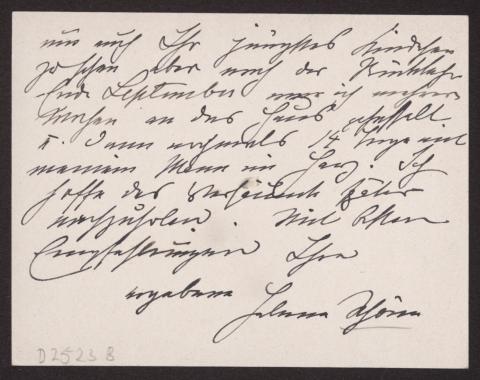 um auch Ihr jüngstes Kindchen
zu sehen aber nach der Rückkehr
Ende September war ich mehrere
Wochen an das Haus gefesselt
u. dann nochmals 14 Tage mit
meinem Mann im Harz. Ich
hoffe das Versäumte später
nachzuholen. Mit besten
Empfehlungen Ihre
ergebene Helene Schöne
D 2523 8